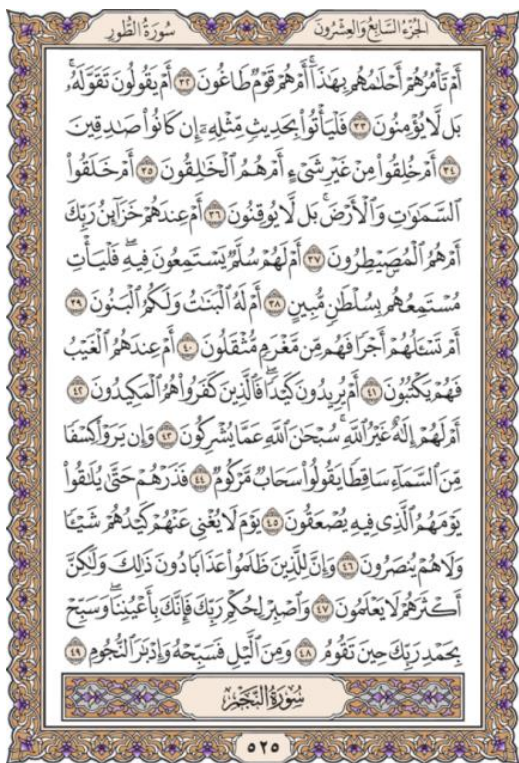 سُورَةُ الطُّورِ الجُزْءُ السَّابِعُ وَالعِشْرُونَ
أَمْ تَأْمُرُهُمْ أَحْلَـٰمُهُم بِهَـٰذَآ ۚ أَمْ هُمْ قَوْمٌ طَاغُونَ ٣٢ أَمْ يَقُولُونَ تَقَوَّلَهُۥ ۚ
بَل لَّا يُؤْمِنُونَ ٣٣ فَلْيَأْتُوا۟ بِحَدِيثٍ مِّثْلِهِۦٓ إِن كَانُوا۟ صَـٰدِقِينَ
٣٤ أَمْ خُلِقُوا۟ مِنْ غَيْرِ شَىْءٍ أَمْ هُمُ ٱلْخَـٰلِقُونَ ٣٥ أَمْ خَلَقُوا۟
ٱلسَّمَـٰوَٰتِ وَٱلْأَرْضَ ۚ بَل لَّا يُوقِنُونَ ٣٦ أَمْ عِندَهُمْ خَزَآئِنُ رَبِّكَ
أَمْ هُمُ ٱلْمُصَۣيْطِرُونَ ٣٧ أَمْ لَهُمْ سُلَّمٌ يَسْتَمِعُونَ فِيهِ ۖ فَلْيَأْتِ
مُسْتَمِعُهُم بِسُلْطَـٰنٍ مُّبِينٍ ٣٨ أَمْ لَهُ ٱلْبَنَـٰتُ وَلَكُمُ ٱلْبَنُونَ ٣٩
أَمْ تَسْـَٔلُهُمْ أَجْرًا فَهُم مِّن مَّغْرَمٍ مُّثْقَلُونَ ٤٠ أَمْ عِندَهُمُ ٱلْغَيْبُ
فَهُمْ يَكْتُبُونَ ٤١ أَمْ يُرِيدُونَ كَيْدًا ۖ فَٱلَّذِينَ كَفَرُوا۟ هُمُ ٱلْمَكِيدُونَ ٤٢
أَمْ لَهُمْ إِلَـٰهٌ غَيْرُ ٱللَّهِ ۚ سُبْحَـٰنَ ٱللَّهِ عَمَّا يُشْرِكُونَ ٤٣ وَإِن يَرَوْا۟ كِسْفًا
مِّنَ ٱلسَّمَآءِ سَاقِطًا يَقُولُوا۟ سَحَابٌ مَّرْكُومٌ ٤٤ فَذَرْهُمْ حَتَّىٰ يُلَـٰقُوا۟
يَوْمَهُمُ ٱلَّذِى فِيهِ يُصْعَقُونَ ٤٥ يَوْمَ لَا يُغْنِى عَنْهُمْ كَيْدُهُمْ شَيْـًٔا
وَلَا هُمْ يُنصَرُونَ ٤٦ وَإِنَّ لِلَّذِينَ ظَلَمُوا۟ عَذَابًا دُونَ ذَٰلِكَ وَلَـٰكِنَّ
أَكْثَرَهُمْ لَا يَعْلَمُونَ ٤٧ وَٱصْبِرْ لِحُكْمِ رَبِّكَ فَإِنَّكَ بِأَعْيُنِنَا ۖ وَسَبِّحْ
بِحَمْدِ رَبِّكَ حِينَ تَقُومُ ٤٨ وَمِنَ ٱلَّيْلِ فَسَبِّحْهُ وَإِدْبَـٰرَ ٱلنُّجُومِ ٤٩
سُورَةُ النَّجْمِ
٥٢٥